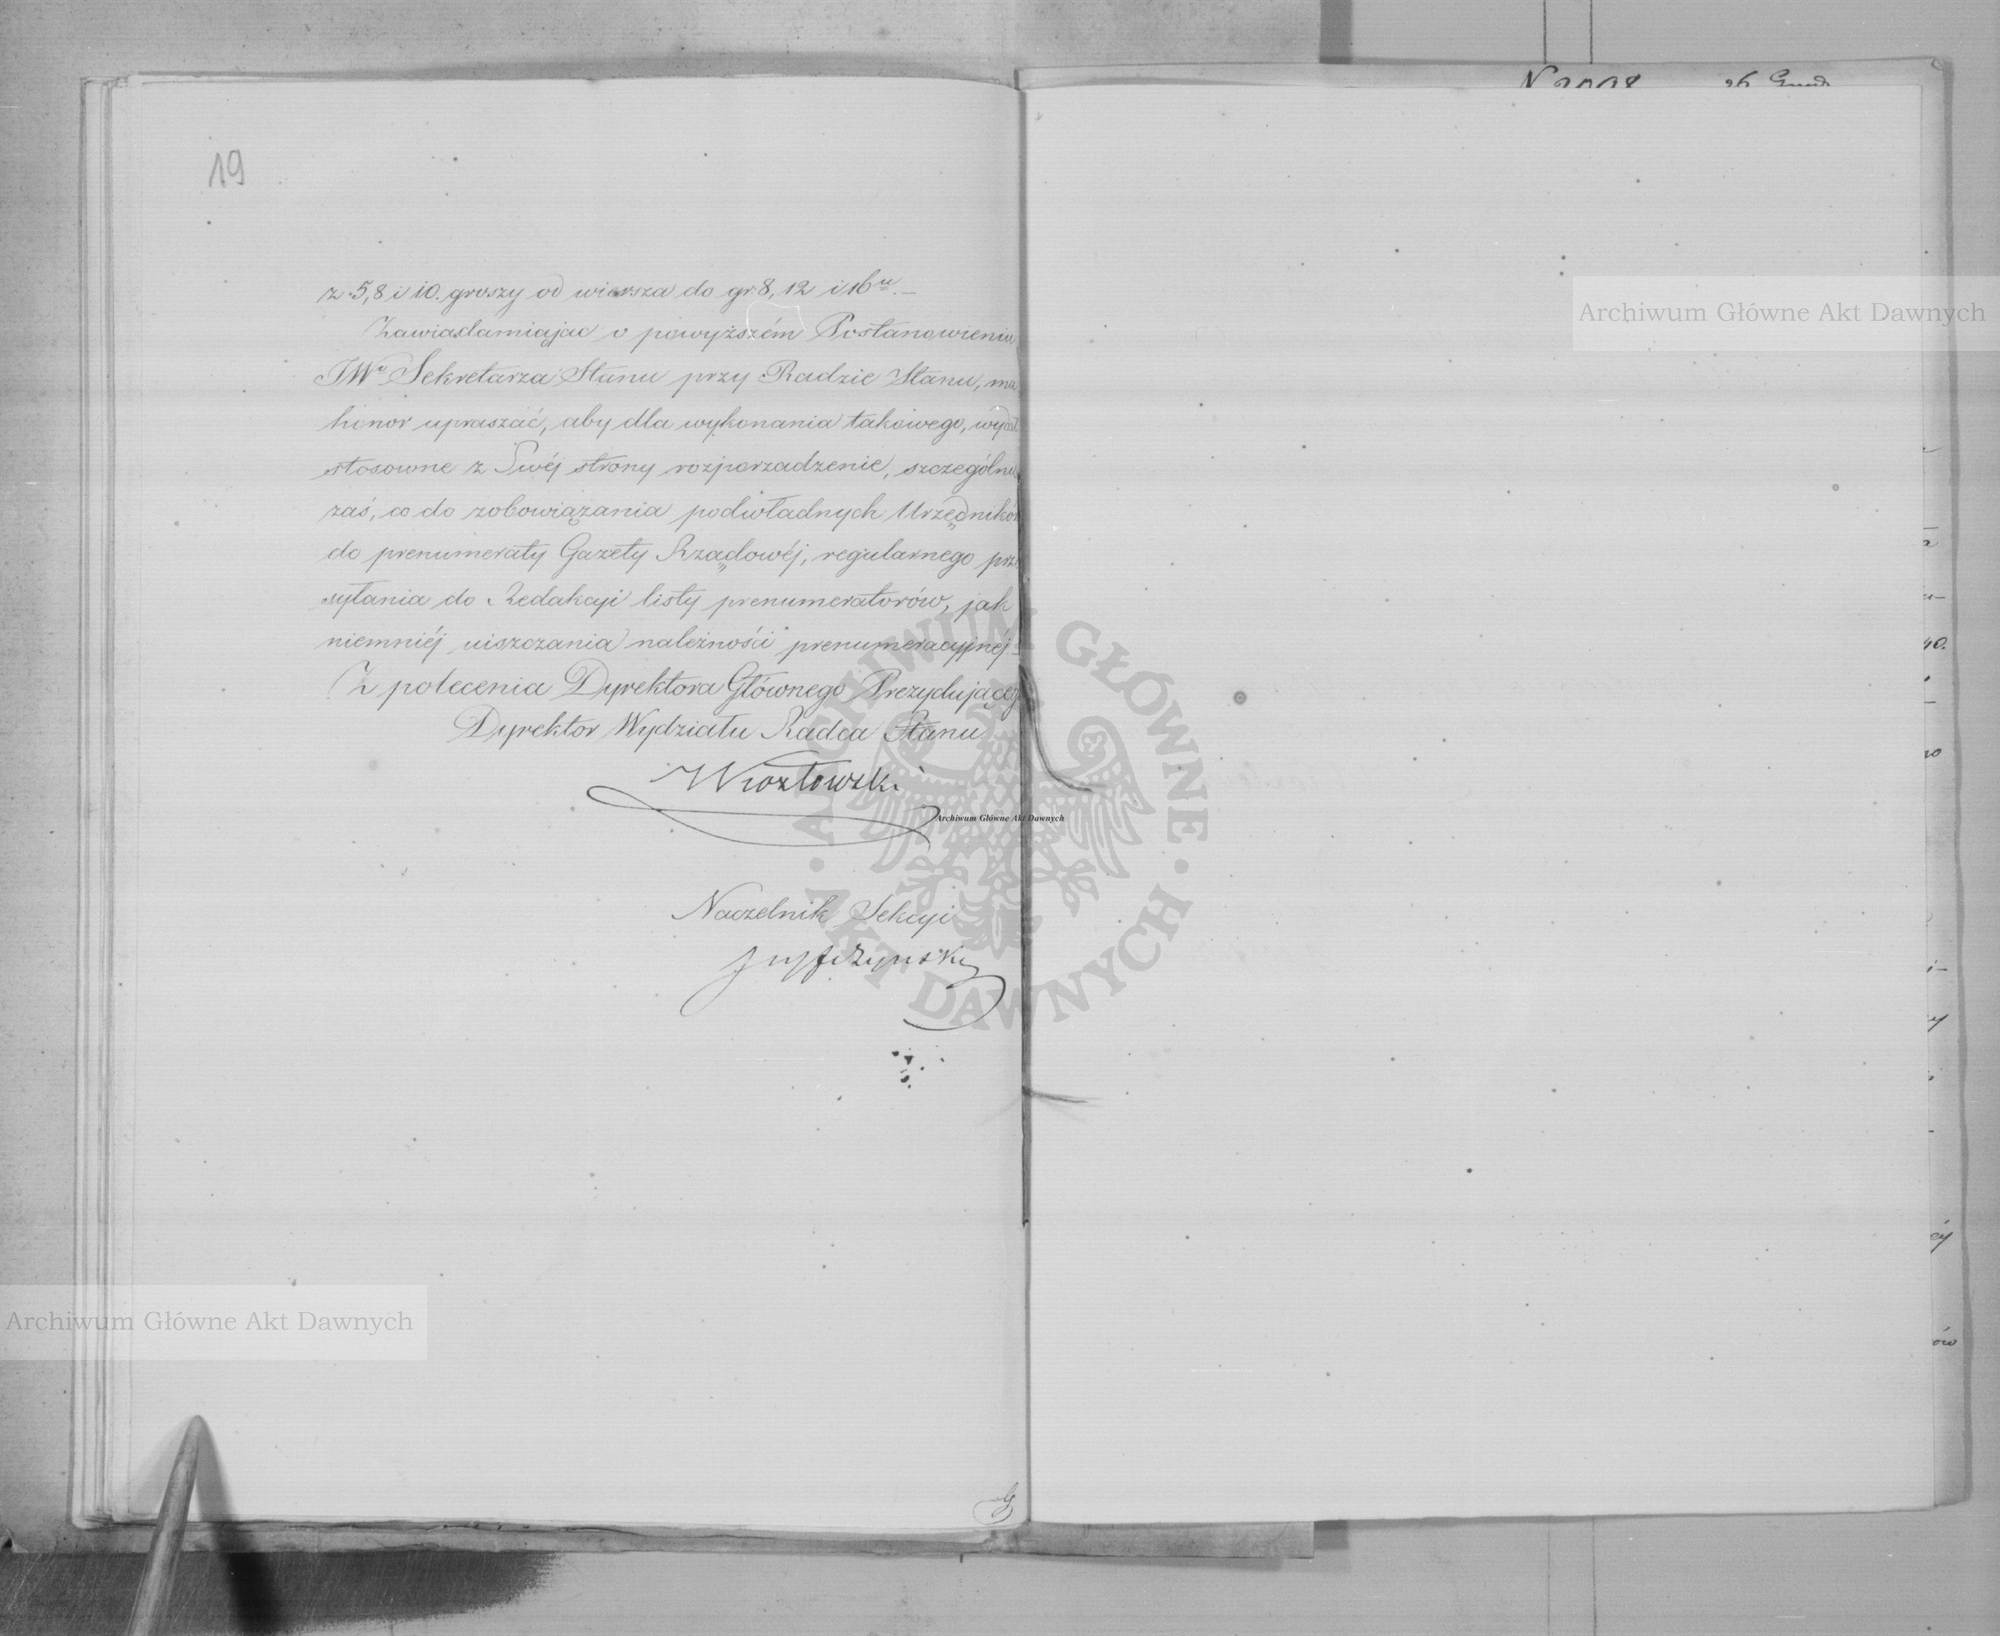 19
z 5, 8 i 10. groszy od wiersza do gr. 8, 12 i 16u.—
Zawiadamiając o powyższém Postanowieniu,
JWo Sekretarza Stanu przy Radzie Stanu, ma
honor upraszać, aby dla wykonania takowego, wydał
stosowne z Swéj strony rozporządzenie, szczególnie
zaś, co do zobowiązania podwładnych Urzędników
do prenumeraty Gazety Rządowéj, regularnego prze
syłania do Redakcyi listy prenumeratorów, jak
niemniéj uiszczania należności prenumeracyjnéj.
Z polecenia Dyrektora Głównego Prezydującego
Dyrektor Wydziału Radca Stanu
Naczelnik Sekcyi
N 2008 26 Grud
40.
ów
Archiwum Główne Akt Dawnych
Archiwum Główne Akt Dawnych
Archiwum Główne Akt Dawnych
ARCHIWUM GŁÓWNE AKT DAWNYCH